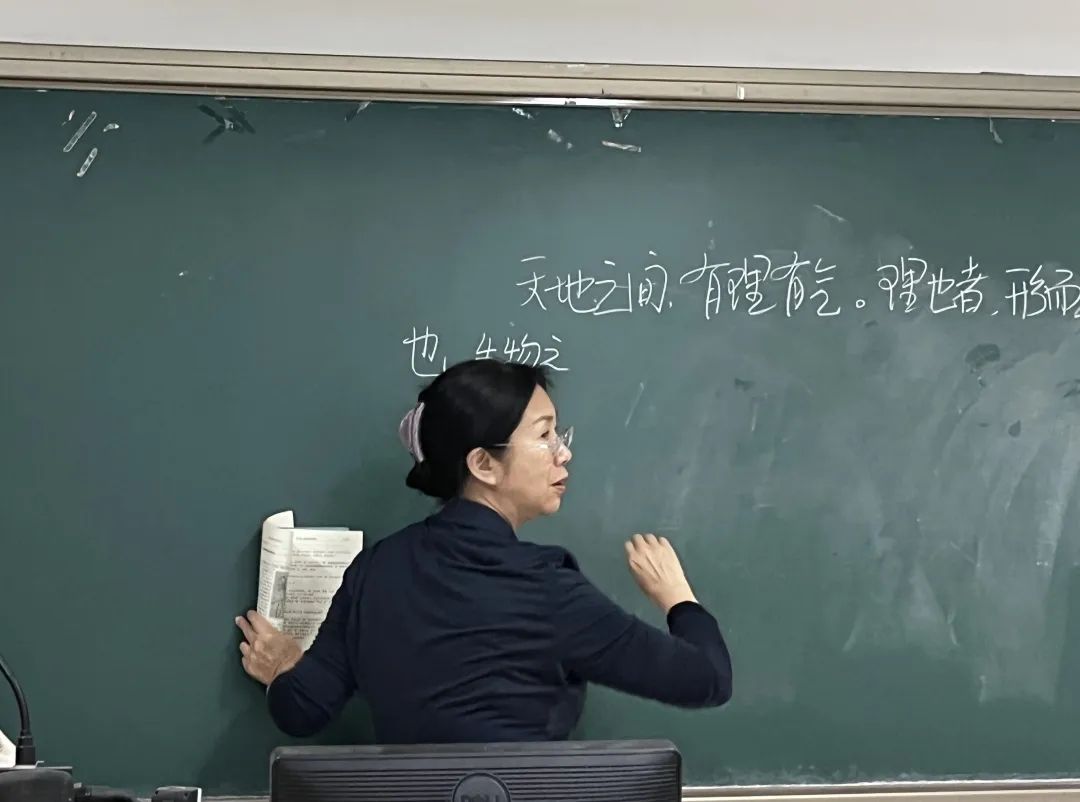 天地之间,有理有气。理也者,形而
也,生物之
DELL